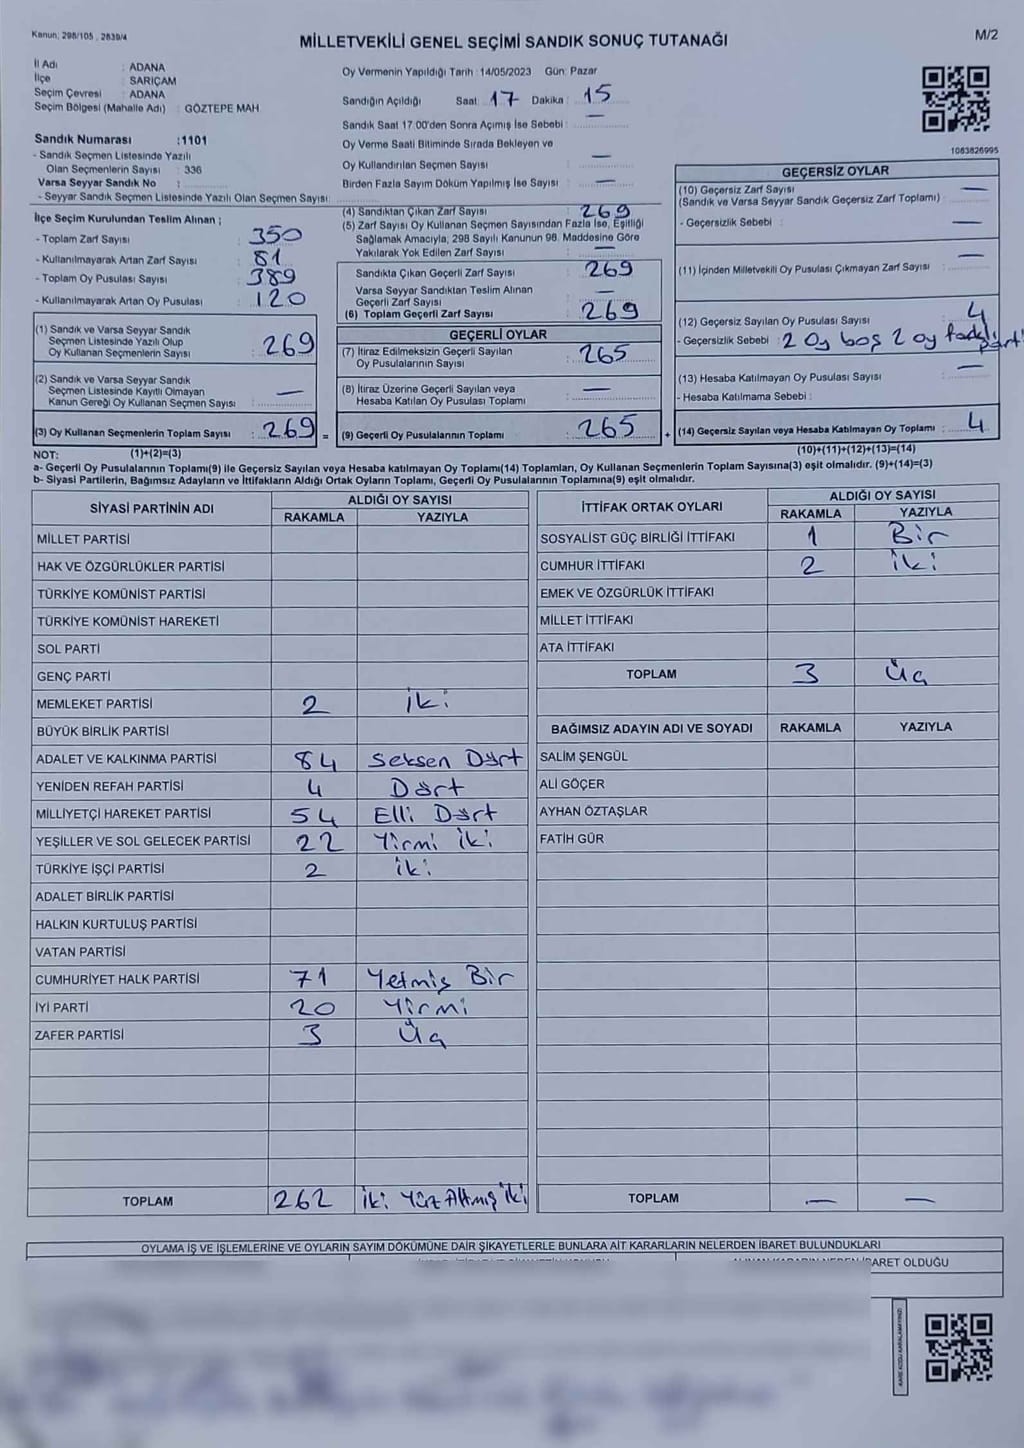 Kanun; 298/105 , 2839/4
MİLLETVEKİLİ GENEL SEÇİMİ SANDIK SONUÇ TUTANAĞI
M/2
İl Adı : ADANA
İlçe : SARIÇAM
Seçim Çevresi : ADANA
Seçim Bölgesi (Mahalle Adı) : GÖZTEPE MAH
Sandık Numarası :1101
- Sandık Seçmen Listesinde Yazılı
Olan Seçmenlerin Sayısı : 336
Varsa Seyyar Sandık No :
- Seyyar Sandık Seçmen Listesinde Yazılı Olan Seçmen Sayısı :
Oy Vermenin Yapıldığı Tarih :14/05/2023 Gün: Pazar
Sandığın Açıldığı Saat: 17 Dakika : 15
Sandık Saat 17:00'den Sonra Açımış İse Sebebi : —
Oy Verme Saati Bitiminde Sırada Bekleyen ve
Oy Kullandırılan Seçmen Sayısı : —
Birden Fazla Sayım Döküm Yapılmış İse Sayısı : —
1063826995
İlçe Seçim Kurulundan Teslim Alınan ;
- Toplam Zarf Sayısı : 350
- Kullanılmayarak Artan Zarf Sayısı : 81
- Toplam Oy Pusulası Sayısı : 389
- Kullanılmayarak Artan Oy Pusulası : 120
(1) Sandık ve Varsa Seyyar Sandık
Seçmen Listesinde Yazılı Olup
Oy Kullanan Seçmenlerin Sayısı : 269
(2) Sandık ve Varsa Seyyar Sandık
Seçmen Listesinde Kayıtlı Olmayan
Kanun Gereği Oy Kullanan Seçmen Sayısı : —
(3) Oy Kullanan Seçmenlerin Toplam Sayısı : 269 =
(4) Sandıktan Çıkan Zarf Sayısı : 269
(5) Zarf Sayısı Oy Kullanan Seçmen Sayısından Fazla İse, Eşitliği
Sağlamak Amacıyla, 298 Sayılı Kanunun 98. Maddesine Göre
Yakılarak Yok Edilen Zarf Sayısı : —
Sandıkta Çıkan Geçerli Zarf Sayısı : 269
Varsa Seyyar Sandıktan Teslim Alınan
Geçerli Zarf Sayısı : —
(6) Toplam Geçerli Zarf Sayısı : 269
GEÇERLİ OYLAR
(7) İtiraz Edilmeksizin Geçerli Sayılan
Oy Pusulalarının Sayısı : 265
(8) İtiraz Üzerine Geçerli Sayılan veya
Hesaba Katılan Oy Pusulası Toplamı : —
(9) Geçerli Oy Pusulalarının Toplamı : 265 +
GEÇERSİZ OYLAR
(10) Geçersiz Zarf Sayısı
(Sandık ve Varsa Seyyar Sandık Geçersiz Zarf Toplamı) : —
- Geçersizlik Sebebi : —
(11) İçinden Milletvekili Oy Pusulası Çıkmayan Zarf Sayısı : —
(12) Geçersiz Sayılan Oy Pusulası Sayısı : 4
- Geçersizlik Sebebi : 2 oy boş 2 oy farklı parti
(13) Hesaba Katılmayan Oy Pusulası Sayısı : —
- Hesaba Katılmama Sebebi :
(14) Geçersiz Sayılan veya Hesaba Katılmayan Oy Toplamı : 4
NOT: (1)+(2)=(3) (10)+(11)+(12)+(13)=(14)
a- Geçerli Oy Pusulalarının Toplamı(9) ile Geçersiz Sayılan veya Hesaba katılmayan Oy Toplamı(14) Toplamları, Oy Kullanan Seçmenlerin Toplam Sayısına(3) eşit olmalıdır. (9)+(14)=(3)
b- Siyasi Partilerin, Bağımsız Adayların ve İttifakların Aldığı Ortak Oyların Toplamı, Geçerli Oy Pusulalarının Toplamına(9) eşit olmalıdır.
SİYASİ PARTİNİN ADI ALDIĞI OY SAYISI
RAKAMLA YAZIYLA
MİLLET PARTİSİ
HAK VE ÖZGÜRLÜKLER PARTİSİ
TÜRKİYE KOMÜNİST PARTİSİ
TÜRKİYE KOMÜNİST HAREKETİ
SOL PARTİ
GENÇ PARTİ
MEMLEKET PARTİSİ 2 İki
BÜYÜK BİRLİK PARTİSİ
ADALET VE KALKINMA PARTİSİ 84 Seksen Dört
YENİDEN REFAH PARTİSİ 4 Dört
MİLLİYETÇİ HAREKET PARTİSİ 54 Elli Dört
YEŞİLLER VE SOL GELECEK PARTİSİ 22 Yirmi İki
TÜRKİYE İŞÇİ PARTİSİ 2 iki
ADALET BİRLİK PARTİSİ
HALKIN KURTULUŞ PARTİSİ
VATAN PARTİSİ
CUMHURİYET HALK PARTİSİ 71 Yetmiş Bir
İYİ PARTİ 20 Yirmi
ZAFER PARTİSİ 3 Üç
TOPLAM 262 İki Yüz Altmış İki
İTTİFAK ORTAK OYLARI ALDIĞI OY SAYISI
RAKAMLA YAZIYLA
SOSYALİST GÜÇ BİRLİĞİ İTTİFAKI 1 Bir
CUMHUR İTTİFAKI 2 İki
EMEK VE ÖZGÜRLÜK İTTİFAKI
MİLLET İTTİFAKI
ATA İTTİFAKI
TOPLAM 3 Üç
BAĞIMSIZ ADAYIN ADI VE SOYADI RAKAMLA YAZIYLA
SALİM ŞENGÜL
ALİ GÖÇER
AYHAN ÖZTAŞLAR
FATİH GÜR
TOPLAM — —
OYLAMA İŞ VE İŞLEMLERİNE VE OYLARIN SAYIM DÖKÜMÜNE DAİR ŞİKAYETLERLE BUNLARA AİT KARARLARIN NELERDEN İBARET BULUNDUKLARI
İBARET OLDUĞU